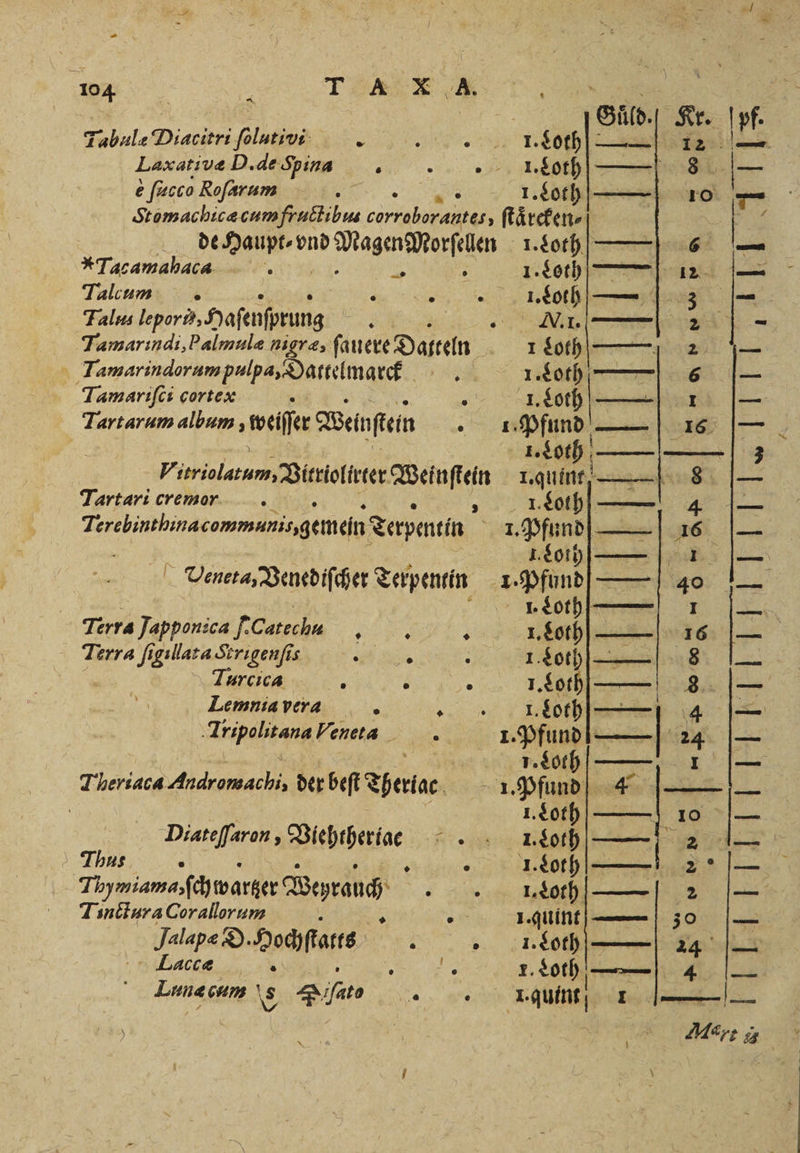 104 T A X A.
Güld. Kr. pf.
Tabulæ Diacitri solutivi . . . 1.Loth — 12 —
Laxativæ D. de Spina . . . 1.Loth — 8 —
è succo Rosarum . . . 1.Loth — 10 —
Stomachicæ cum fructibus corroborantes, stärcken-
de Haupt- vnd MagenMorsellen 1.Loth — 6 —
*Tacamahaca . . . . 1.Loth — 12 —
Talcum . . . . . . 1.Loth — 3 —
Talus leporis, Hasensprung . . . N.1. — 2 —
Tamarindi, Palmulæ nigræ, sauere Datteln 1 Loth — 2 —
Tamarindorum pulpa, Dattelmarck . 1.Loth — 6 —
Tamarisci cortex . . . . 1.Loth — 1 —
Tartarum album, weisser Weinstein . 1.Pfund — 16 —
1.Loth — — 3
Vitriolatum, Vitriolirter Weinstein 1.quint. — 8 —
Tartari cremor . . . . , 1.Loth — 4 —
Terebinthina communis, gemein Terpentin 1.Pfund — 16 —
1.Loth — 1 —
Veneta, Venedischer Terpentin 1.Pfund — 40 —
1.Loth — 1 —
Terra Japponica s. Catechu . . . 1.Loth — 16 —
Terra sigillata Strigensis . . . 1.Loth — 8 —
Turcica . . . 1.Loth — 8 —
Lemnia vera . . . 1.Loth — 4 —
Tripolitana Veneta . 1.Pfund — 24 —
1.Loth — 1 —
Theriaca Andromachi, der best Theriac 1.Pfund 4 — —
1.Loth — 10 —
Diatessaron, Viehtheriac . . 1.Loth — 2 —
Thus . . . . . . 1.Loth — 2 —
Thymiama, schwartzer Weyrauch . . 1.Loth — 2 —
Tinctura Corallorum . . . 1.quint — 30 —
Jalapæ D. Hochstatts . . 1.Loth — 24 —
Laccæ . . . . 1.Loth — 4 —
Lunæ cum . . 1.quint 1 — —
Mart is